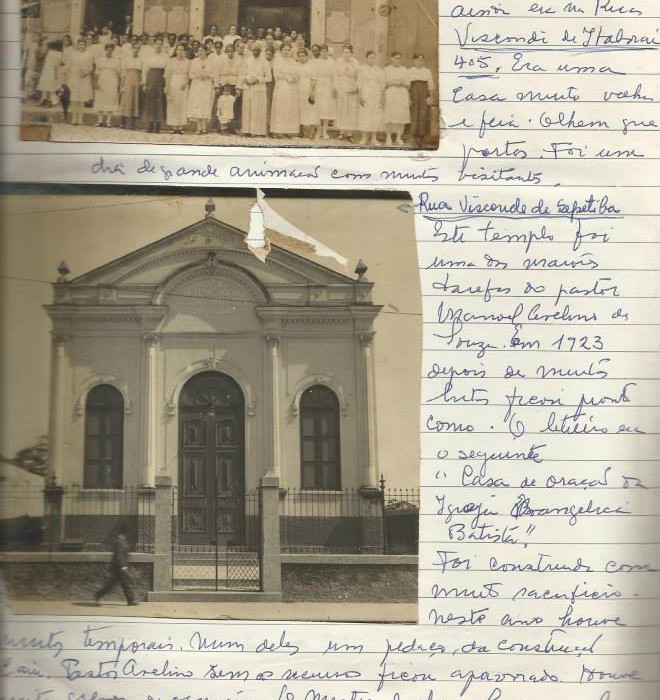 era na Rua
Visconde de Itaboraí
405. Era uma
casa muito velha
e feia. Olhem que
portas. Foi um
dia de grande animação com muitos visitantes.
Rua Visconde de Sepetiba
Este templo foi
uma das maiores
tarefas do pastor
Manoel Avelino de
Souza. Em 1723
depois de muitas
lutas ficou pronto
como. O letreiro era
o seguinte
"Casa de oração da
Igreja Evangelica
Batista."
Foi construida com
muito sacrificio.
Neste ano houve
muitos temporais. Num deles um pedaço da construção
caiu. Pastor Avelino sem os recursos ficou apavorado. Houve